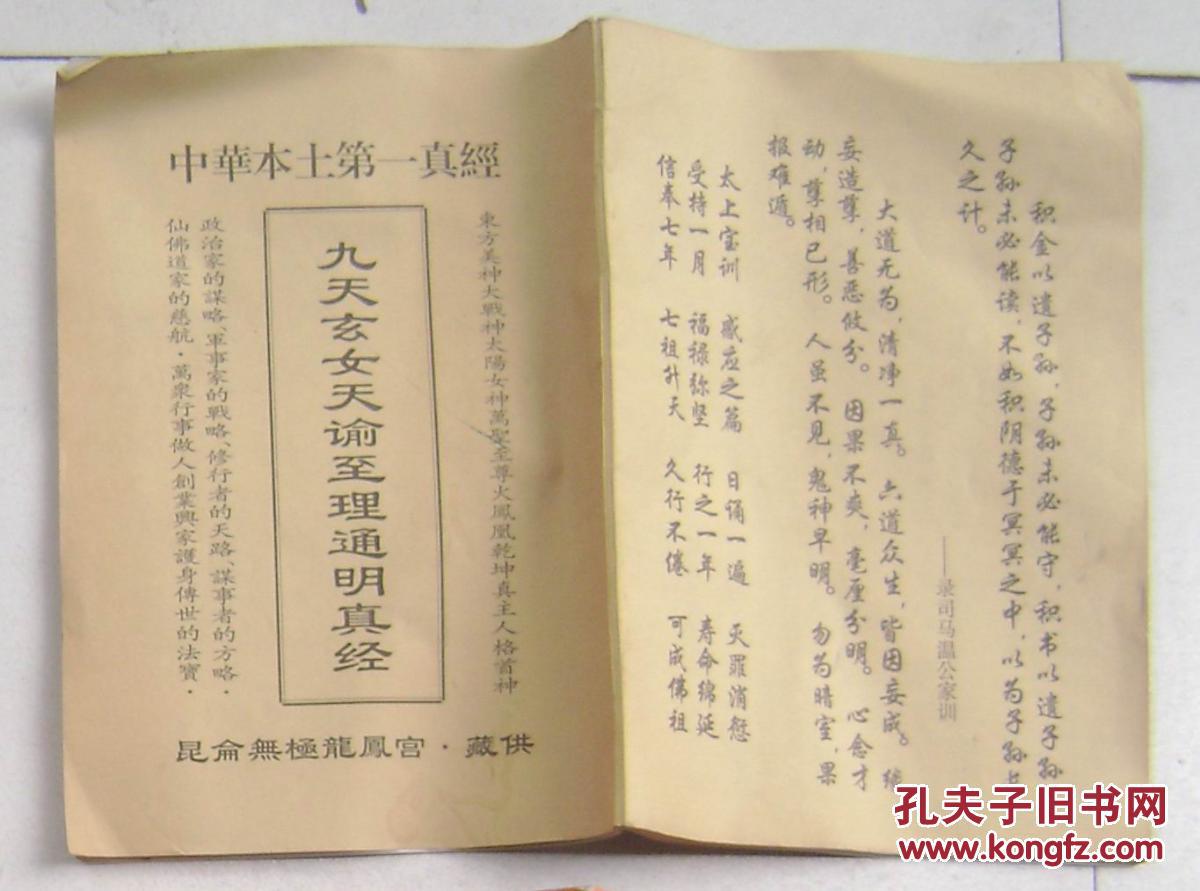 中華本土第一真經
東方美神大戰神太陽女神萬聖至尊火鳳凰乾坤真主人格首神
九天玄女天谕至理通明真经
政治家的謀略、軍事家的戰略、修行者的天路、謀事者的方略·
仙佛道家的慈航·萬衆行事做人創業興家護身傳世的法寶·
昆侖無極龍鳳宫·藏供
积金以遗子孙，子孙未必能守，积书以遗子孙
子孙未必能读，不如积阴德于冥冥之中，以为子孙
久之计。
——录司马温公家训
大道无为，清净一真。六道众生，皆因妄成。
妄造孽，善恶攸分。因果不爽，毫厘分明。心念才
动，孽相已形。人虽不见，鬼神早明。勿为暗室，果
报难遁。
太上宝训 感应之篇 日诵一遍 灭罪消愆
受持一月 福禄弥坚 行之一年 寿命绵延
信奉七年 七祖升天 久行不倦 可成佛祖
孔夫子旧书网
www.kongfz.com